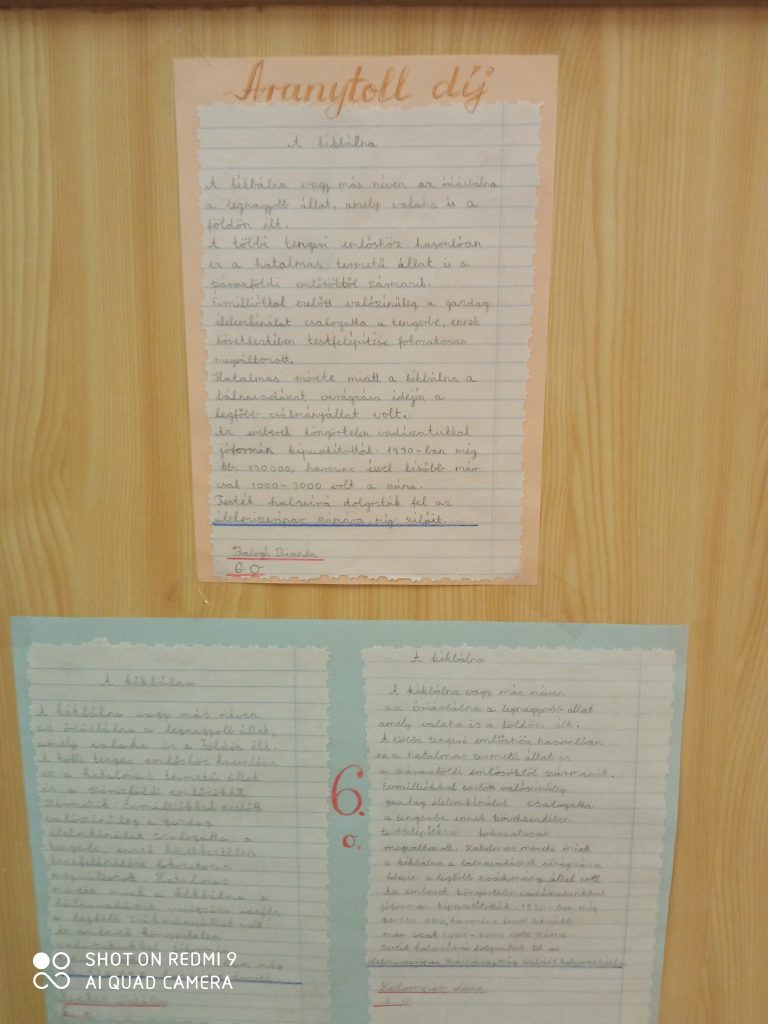 Aranytoll díj
A kékbálna
A kékbálna vagy más néven az óriásbálna
a legnagyobb állat, amely valaha is a
földön élt.
A többi tengeri emlőshöz hasonlóan
ez a hatalmas termetű állat is a
szárazföldi emlősöktől származik.
Évmilliókkal ezelőtt valószínűleg a gazdag
élelemkínálat csalogatta a tengerbe, ennek
következtében testfelépítése fokozatosan
megváltozott.
Hatalmas mérete miatt a kékbálna a
bálnavadászat virágzása idején a
legfőbb zsákmányállat volt.
Az emberek könyörtelen vadászatukkal
jóformán kipusztították. 1930-ban még
kb. 130000, harminc évvel később már
csak 1000-3000 volt a száma.
Testét halzsírrá dolgozták fel az
élelmiszeripar számára, míg sziláit...
Balogh Bianka
6. O
A kékbálna
A kékbálna vagy más néven
az óriásbálna a legnagyobb állat,
amely valaha is a Földön élt.
A többi tengeri emlőshöz hasonlóan
ez a hatalmas termetű állat
is a szárazföldi emlősöktől
származik. Évmilliókkal ezelőtt
valószínűleg a gazdag
élelemkínálat csalogatta a
tengerbe, ennek következtében
testfelépítése fokozatosan
megváltozott. Hatalmas
mérete miatt a kékbálna a
bálnavadászat virágzása idején
a legfőbb zsákmányállat volt.
Az emberek könyörtelen
6.
o.
A kékbálna
A kékbálna vagy más néven
az óriásbálna a legnagyobb állat
amely valaha is a földön élt.
A többi tengeri emlőshöz hasonlóan
ez a hatalmas termetű állat is
a szárazföldi emlősöktől származik.
Évmilliókkal ezelőtt valószínűleg
gazdag élelemkínálat csalogatta
a tengerbe, ennek következtében
testfelépítése fokozatosan
megváltozott. Hatalmas mérete miatt
a kékbálna a bálnavadászat virágzása
idején a legfőbb zsákmány állat volt.
Az emberek könyörtelen vadászatukkal
jóformán kipusztították. 1930-ban még
kb. 130.000, harminc évvel később
már csak 1000-3000 volt száma.
Testét halzsírrá dolgozták fel az
élelmiszeripar számára, míg sziláit
6. o.
SHOT ON REDMI 9
AI QUAD CAMERA